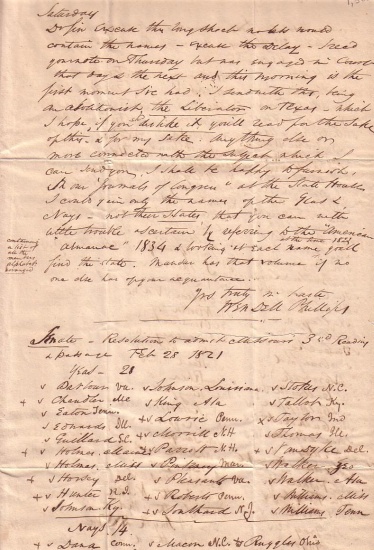 Saturday
Dr Sir Excuse this long sheet no less would
contain the names – excuse the delay – I read
your note on Thursday but was engaged in Court
that day & the next and this morning is the
first moment I've had, I send with this, being
an abolitionist, the Liberator on Texas – which
I hope, if you dislike it you'll read for the sake
of this & for my sake. Anything else or
more connected with the subject which I
can send you, I shall be happy to furnish,
In our "journals of Congress" at the State House
I could gain only the names of the Yeas &
Nays – not their States that you can with
little trouble ascertain by referring to the American
almanac 1834 & looking at each name you'll
find the state. Mander has that volume if no
one else has of your acquaintance.
Yrs truly in haste
Wendell Phillips
Senate – Resolution to admit Missouri 3rd Reading
& passage Feb 28 1821
Yeas – 28
s Barbour Va. s Johnson, Louisiana s Stokes N.C.
+ s Chandler Me s King Ala s Talbot Ky.
s Eaton Tenn. + s Lowrie Penn. + s Taylor Ind
s Edwards Ill. + s Morrill N.H s Thomas Ill.
s Gaillard + s Parrott N.H. + s Vandyke Del.
+ s Holmes, Maine s Pinkney s Walker Geo
s Holmes, Miss s Pleasants Va s Walker Ala
+ s Horsey Del + s Roberts Penn. s Williams Miss
+ s Hunter R.I. + s Southard N.J. s Williams Tenn
s Johnson Ky
Nays 14
+ s Dana Conn. s Macon N.C. + s Ruggles Ohio